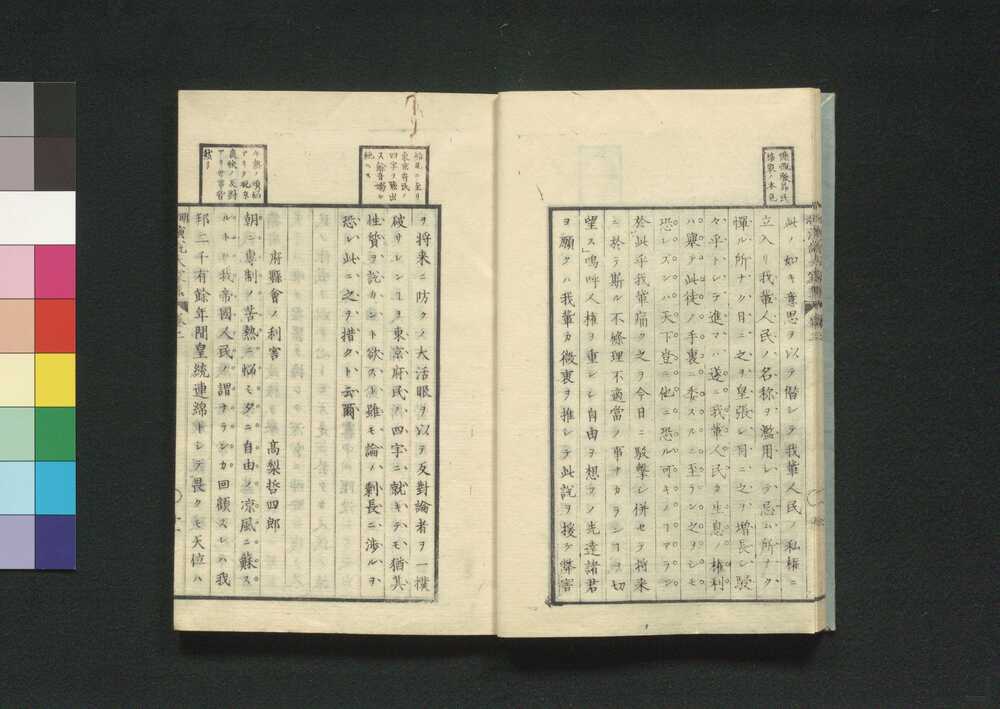 此ノ如キ意思ヲ以テ階シテ我輩人民ノ私権ニ
立入リ我輩人民ノ名称ヲ濫用シテ忌ム所ナク
憚ル所ナク日ニ之ヲ皇張シ月ニ之ヲ増長シ駸
々乎トシテ進マハ遂ニ我輩人民カ生息ノ権利
ハ挙テ此徒ノ手裏ニ委スルニ至ラン之ヲシモ
恐レズンハ天下豈ニ他ニ恐ル可キノコアラン
於此乎我輩痛ク之ヲ今日ニ駁撃シ併セテ将来
ニ於テ斯ル不條理不適當ノ事ナカランコヲ切
望ス嗚呼人権ヲ重シシ自由ヲ想フノ先達諸君
ヲ願クハ我輩カ微衷ヲ推シテ此説ヲ援ケ弊害
ヲ将来ニ防クノ大活眼ヲ以テ反對論者ヲ一撲
破サレンコヲ東京府民ノ四字ニ就キテモ猶其
性質ヲ説カント欲スト雖モ論ノ剰長ニ渉ルヲ
恐レ此ニ之ヲ措クト云爾
府縣會ノ利害
高梨哲四郎
朝ニ専制ノ苦熱ニ悩ミ夕ニ自由ノ凉風ニ蘇ス
ルトハ我帝國人民ノ謂ナランカ回顧スレハ我
邦二千有餘年間皇統連綿トシテ畏クモ天位ハ